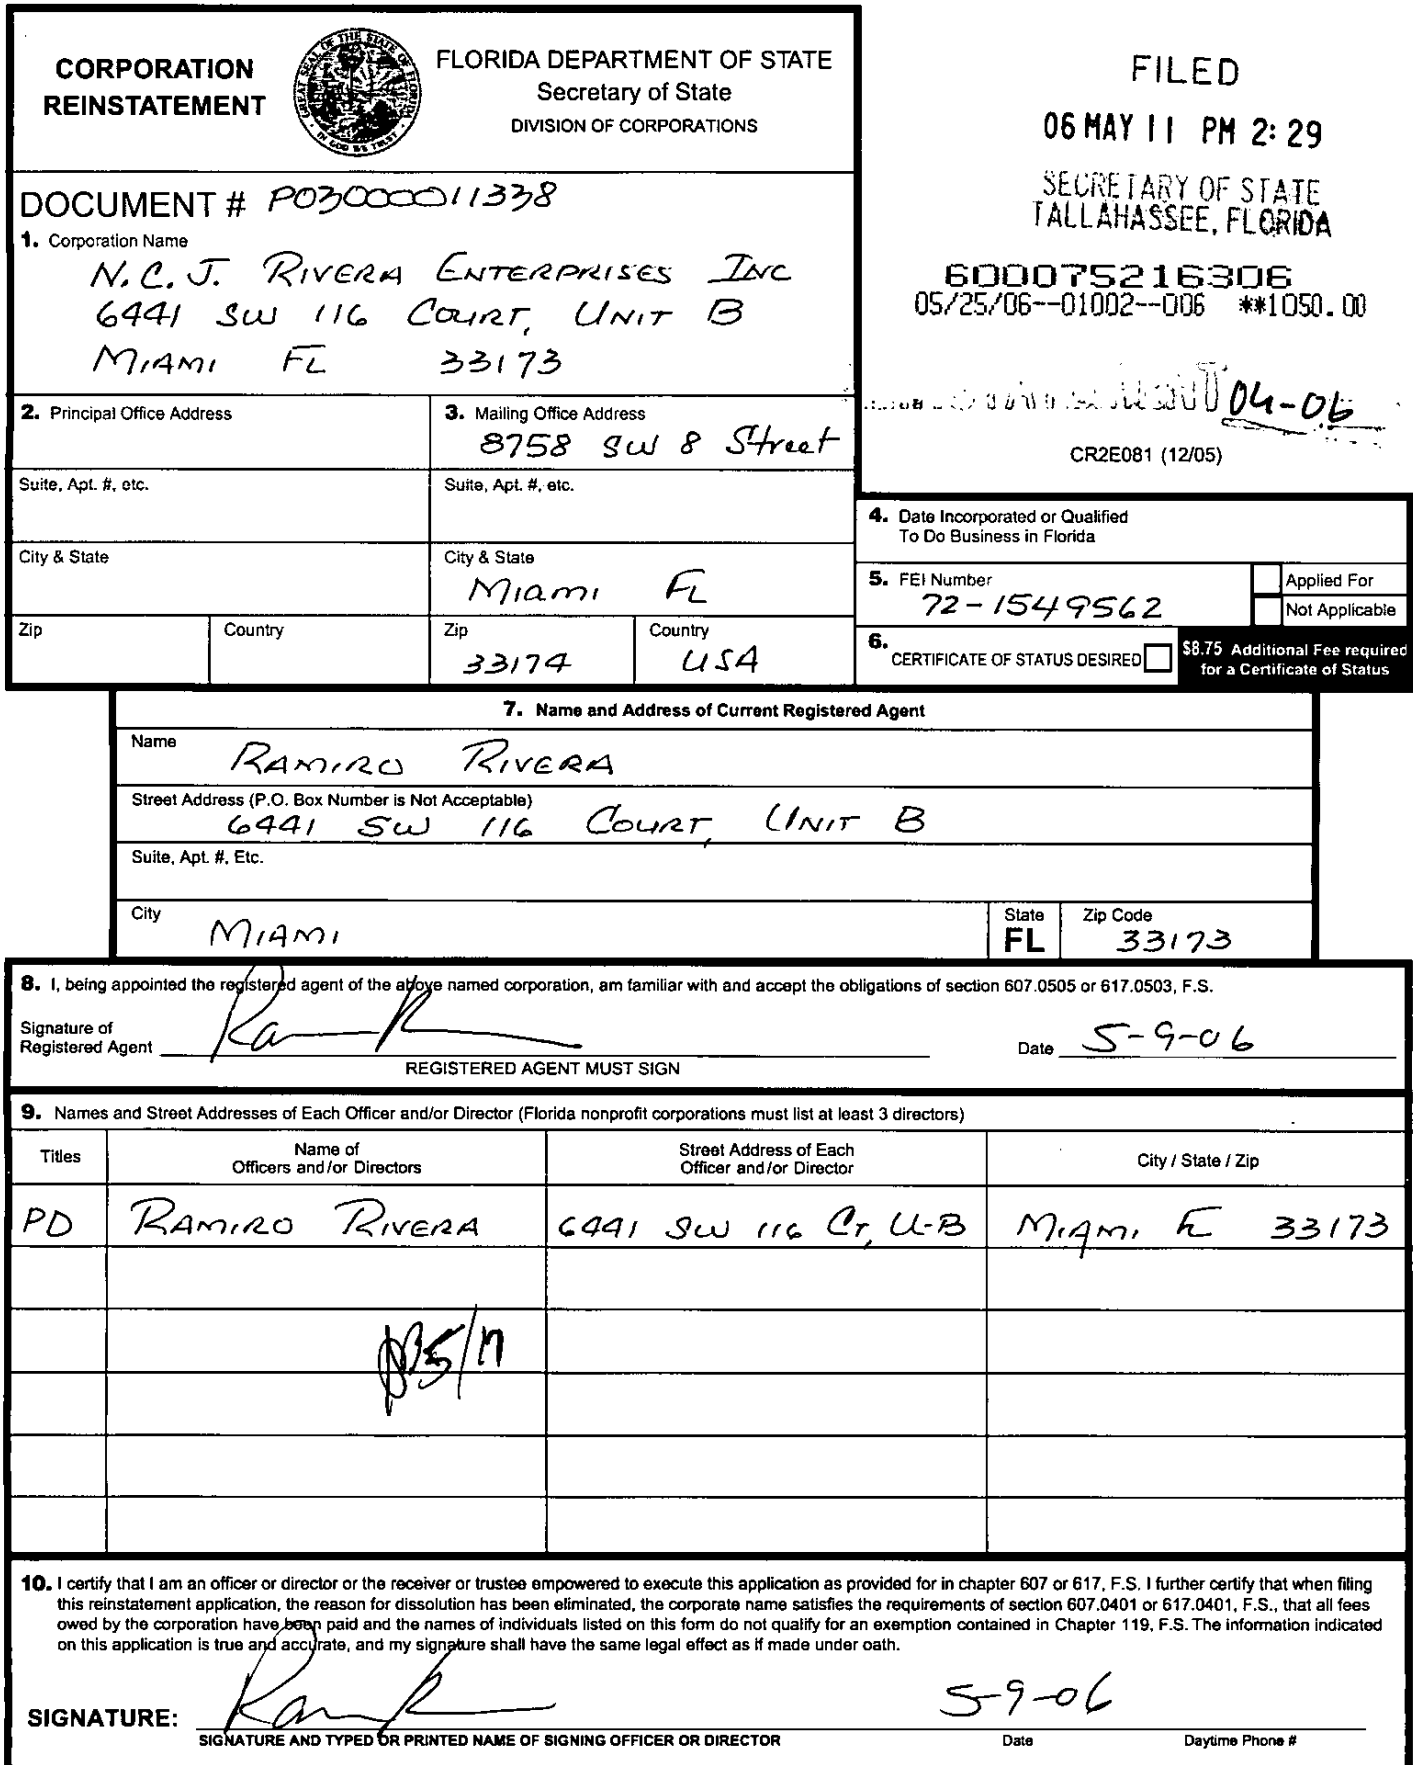 CORPORATION
REINSTATEMENT
GREAT SEAL OF THE STATE OF FLORIDA
IN GOD WE TRUST
FLORIDA DEPARTMENT OF STATE
Secretary of State
DIVISION OF CORPORATIONS
FILED
06 MAY 11 PM 2:29
SECRETARY OF STATE
TALLAHASSEE, FLORIDA
600075216306
05/25/06--01002--006 **1050.00
04-06
CR2E081 (12/05)
DOCUMENT # P03000011338
1. Corporation Name
N.C.J. RIVERA ENTERPRISES INC
6441 SW 116 COURT, UNIT B
MIAMI FL 33173
2. Principal Office Address
3. Mailing Office Address
8758 SW 8 Street
Suite, Apt. #, etc.
Suite, Apt. #, etc.
City & State
City & State
Miami FL
Zip
Country
Zip
33174
Country
USA
4. Date Incorporated or Qualified
To Do Business in Florida
5. FEI Number
72-1549562
Applied For
Not Applicable
6. CERTIFICATE OF STATUS DESIRED
$8.75 Additional Fee required
for a Certificate of Status
7. Name and Address of Current Registered Agent
Name
RAMIRO RIVERA
Street Address (P.O. Box Number is Not Acceptable)
6441 SW 116 COURT, UNIT B
Suite, Apt. #, Etc.
City
MIAMI
State
FL
Zip Code
33173
8. I, being appointed the registered agent of the above named corporation, am familiar with and accept the obligations of section 607.0505 or 617.0503, F.S.
Signature of
Registered Agent
Date 5-9-06
REGISTERED AGENT MUST SIGN
9. Names and Street Addresses of Each Officer and/or Director (Florida nonprofit corporations must list at least 3 directors)
Titles
Name of
Officers and/or Directors
Street Address of Each
Officer and/or Director
City / State / Zip
PD RAMIRO RIVERA 6441 SW 116 CT, U-B MIAMI FL 33173
5/17
10. I certify that I am an officer or director or the receiver or trustee empowered to execute this application as provided for in chapter 607 or 617, F.S. I further certify that when filing
this reinstatement application, the reason for dissolution has been eliminated, the corporate name satisfies the requirements of section 607.0401 or 617.0401, F.S., that all fees
owed by the corporation have been paid and the names of individuals listed on this form do not qualify for an exemption contained in Chapter 119, F.S. The information indicated
on this application is true and accurate, and my signature shall have the same legal effect as if made under oath.
SIGNATURE:
5-9-06
SIGNATURE AND TYPED OR PRINTED NAME OF SIGNING OFFICER OR DIRECTOR
Date
Daytime Phone #